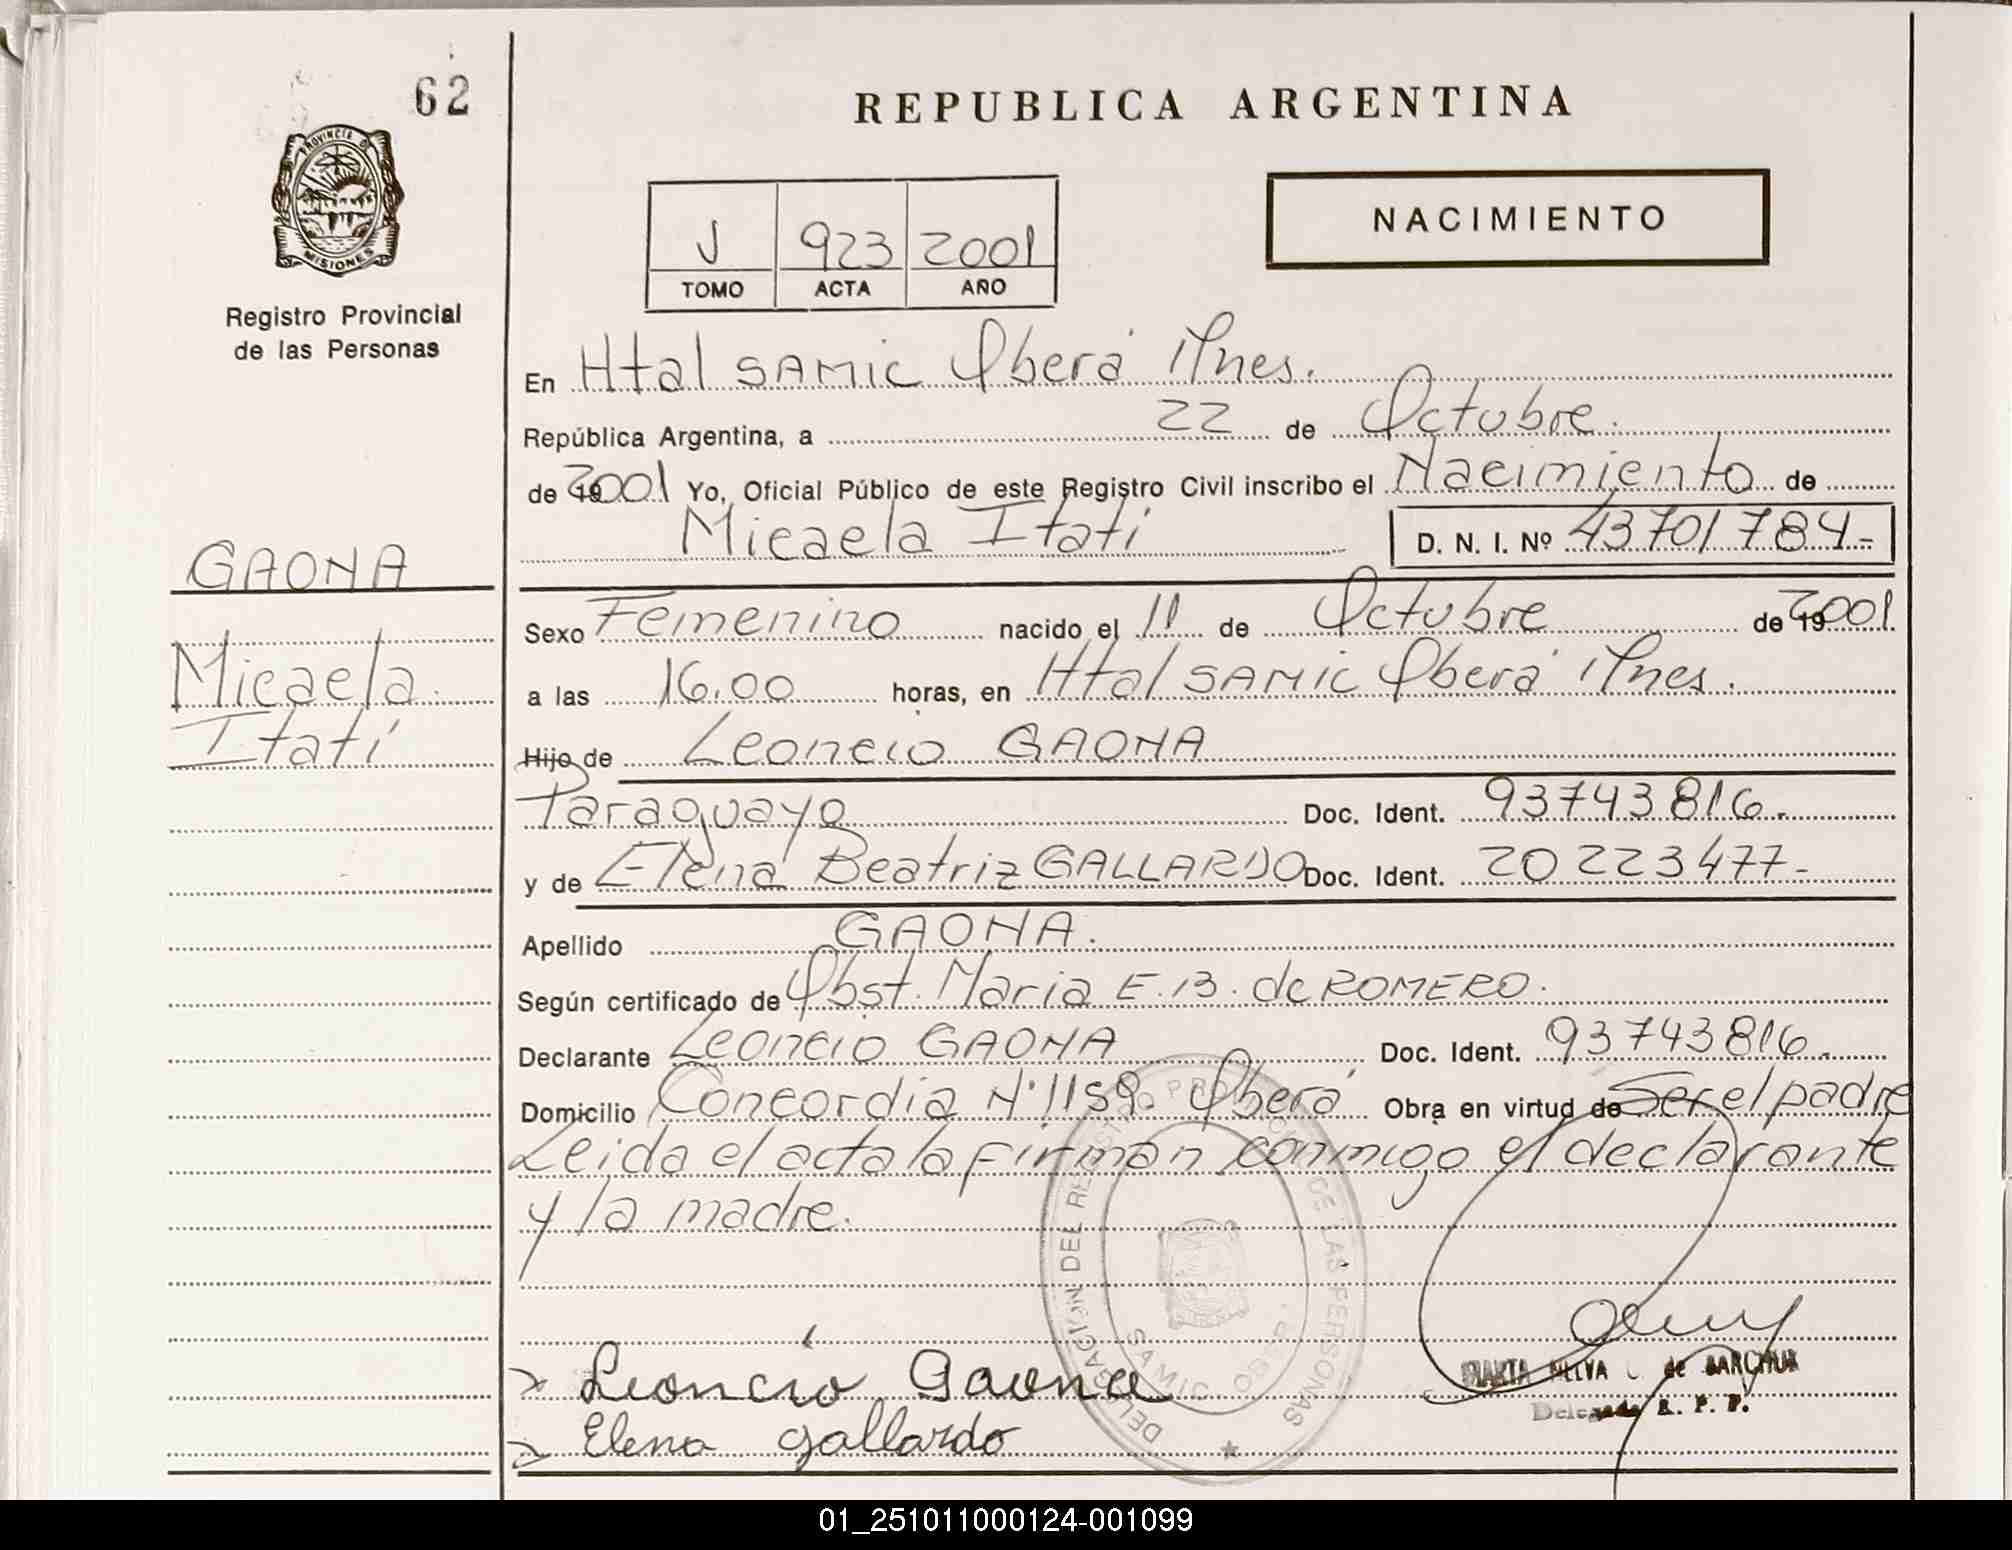 62
REPUBLICA ARGENTINA
PROVINCIA DE
MISIONES
Registro Provincial
de las Personas
NACIMIENTO
J 923 2001
TOMO ACTA AÑO
En Htal SAMIC Oberá Mnes.
República Argentina, a 22 de Octubre.
de 2001 Yo, Oficial Público de este Registro Civil inscribo el Nacimiento de
Micaela Itatí D. N. I. Nº 43701784-
GAONA
Micaela
Itatí
Sexo Femenino nacido el 11 de Octubre de 2001
a las 16.00 horas, en Htal SAMIC Oberá Mnes.
Hijo de Leoncio GAONA
Paraguayo Doc. Ident. 93743816.
y de Elena Beatriz GALLARDO Doc. Ident. 20223477-
Apellido GAONA.
Según certificado de Obst. Maria E. B. de ROMERO.
Declarante Leoncio GAONA Doc. Ident. 93743816.
Domicilio Concordia Nº 1159. Oberá Obra en virtud de Ser el padre
Leida el acta la firman conmigo el declarante
y la madre.
DELEGACION DEL REGISTRO PROVINCIAL DE LAS PERSONAS
SAMIC
Leoncio Gaona
Elena gallardo
de BARCHUK
Delegada R. P. P.
01_251011000124-001099